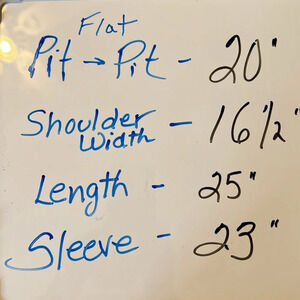 Flat
Pit → Pit - 20"
Shoulder Width - 16 1/2"
Length - 25"
Sleeve - 23"